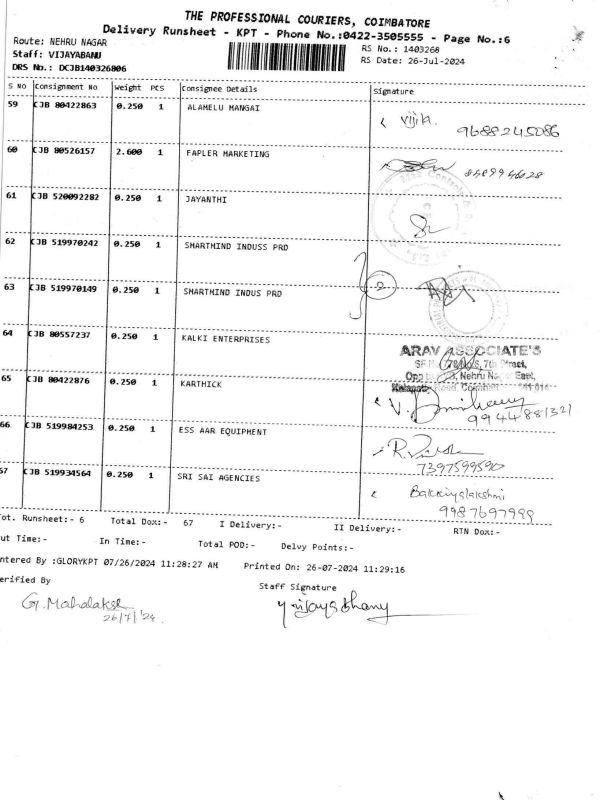 THE PROFESSIONAL COURIERS, COIMBATORE
Delivery Runsheet - KPT - Phone No.:0422-3505555 - Page No.:6
Route: NEHRU NAGAR
RS No.: 1403268
Staff: VIJAYABANU
RS Date: 26-Jul-2024
DRS No.: DCJB140326806
S NO Consignment No Weight PCS Consignee Details Signature
59 CJB 80422863 0.250 1 ALAMELU MANGAI
Vijik. 9688245086
60 CJB 80526157 2.600 1 FAPLER MARKETING
61 CJB 520092282 0.250 1 JAYANTHI
62 CJB 519970242 0.250 1 SHARTHIND INDUSS PRD
63 CJB 519970149 0.250 1 SHARTHIND INDUS PRD
2
64 CJB 80557237 0.250 1 KALKI ENTERPRISES
ARAV ASSOCIATE'S
7th Street,
Nehru Na East,
65 CJB 80422876 0.250 1 KARTHICK
9944881321
66 CJB 519984253 0.250 1 ESS AAR EQUIPMENT
7397599590
67 CJB 519934564 0.250 1 SRI SAI AGENCIES
Bakkiyalakshmi
9987697999
ot. Runsheet:- 6 Total Dox:- 67 I Delivery:- II Delivery:- RTN Dox:-
ut Time:- In Time:- Total POD:- Delvy Points:-
ntered By :GLORYKPT 07/26/2024 11:28:27 AM Printed On: 26-07-2024 11:29:16
erified By Staff Signature
G. Mahalaksh
26/7/'24.